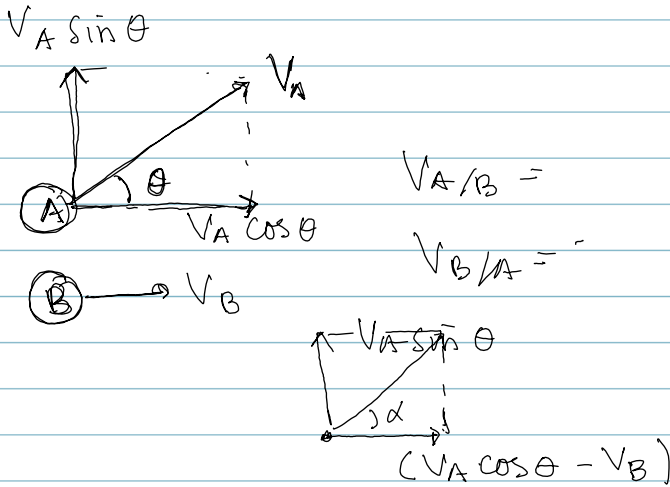 V_A sin θ
V_A
θ
A
V_A cos θ
V_A/B =
V_B/A =
B
V_B
V_A sin θ
α
(V_A cos θ - V_B)